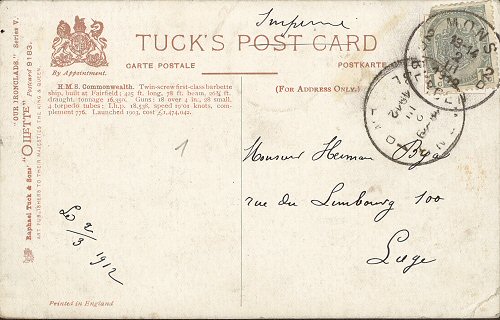 "OUR IRONCLADS." Series V.
Raphael Tuck & Sons' "OILETTE" Postcard 9183.
ART PUBLISHERS TO THEIR MAJESTIES THE KING & QUEEN.
By Appointment.
Imprimé
TUCK'S POST CARD
CARTE POSTALE
POSTKARTE
(FOR ADDRESS ONLY.)
H.M.S. Commonwealth. Twin-screw first-class barbette
ship, built at Fairfield; 425 ft. long, 78 ft. beam, 26¾ ft.
draught, tonnage 16,350. Guns: 18 over 4 in., 28 small,
4 torpedo tubes; I.h.p. 18,538, speed 19·01 knots, com-
plement 776. Launched 1903, cost £1,474,042.
MONS
1912
1
Monsieur Herman
rue du Limbourg 100
Liège
Le 2/3 1912
Printed in England